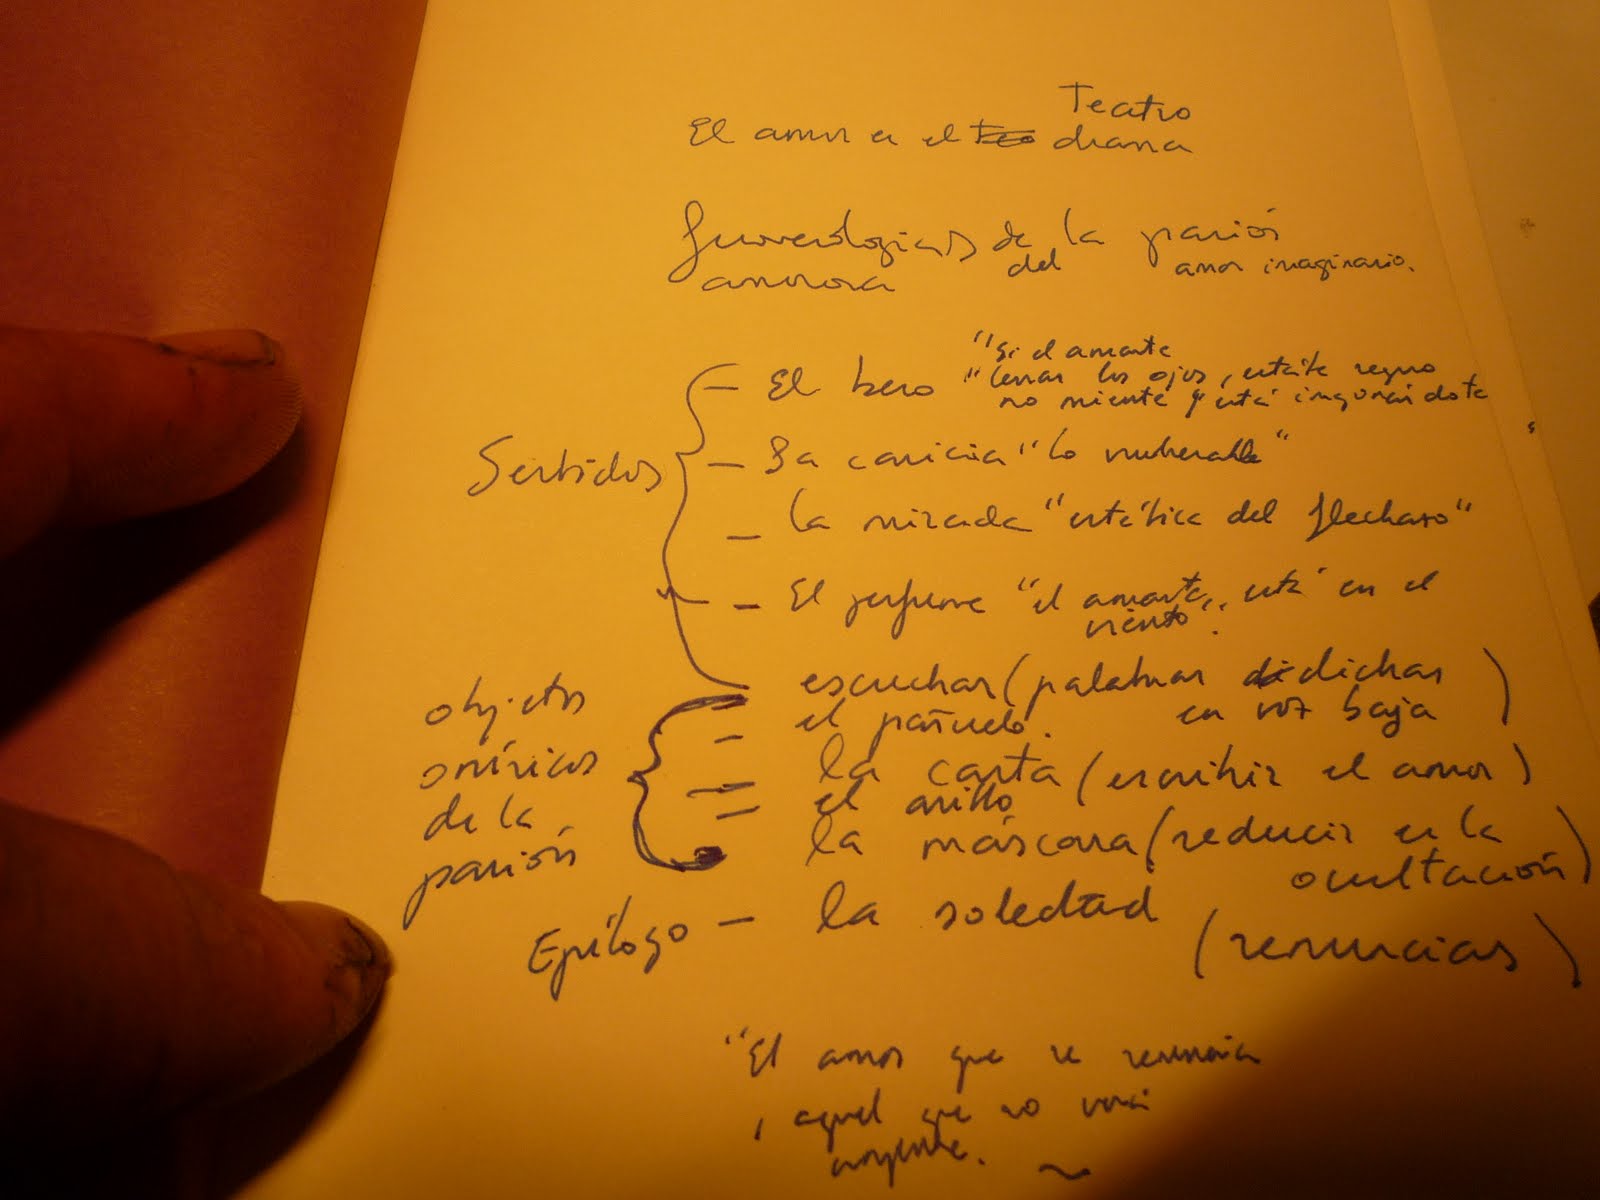 Teatro
El amor es el drama
de la pasión
amorosa del amor imaginario.
"Si el amante
El beso "cerrar los ojos, estáte seguro
no miente y está imaginándote
Sentidos
La caricia "lo vulnerable"
La mirada "estética del flechazo"
El perfume "el amante, está en el
viento".
escuchar (palabras dichas
en voz baja)
objetos
oníricos
de la
pasión
el pañuelo.
la carta (escribir el amor)
el anillo
la máscara (seducir en la
ocultación)
Epílogo - la soledad
(renuncias)
"El amor que se renuncia
, aquel que no